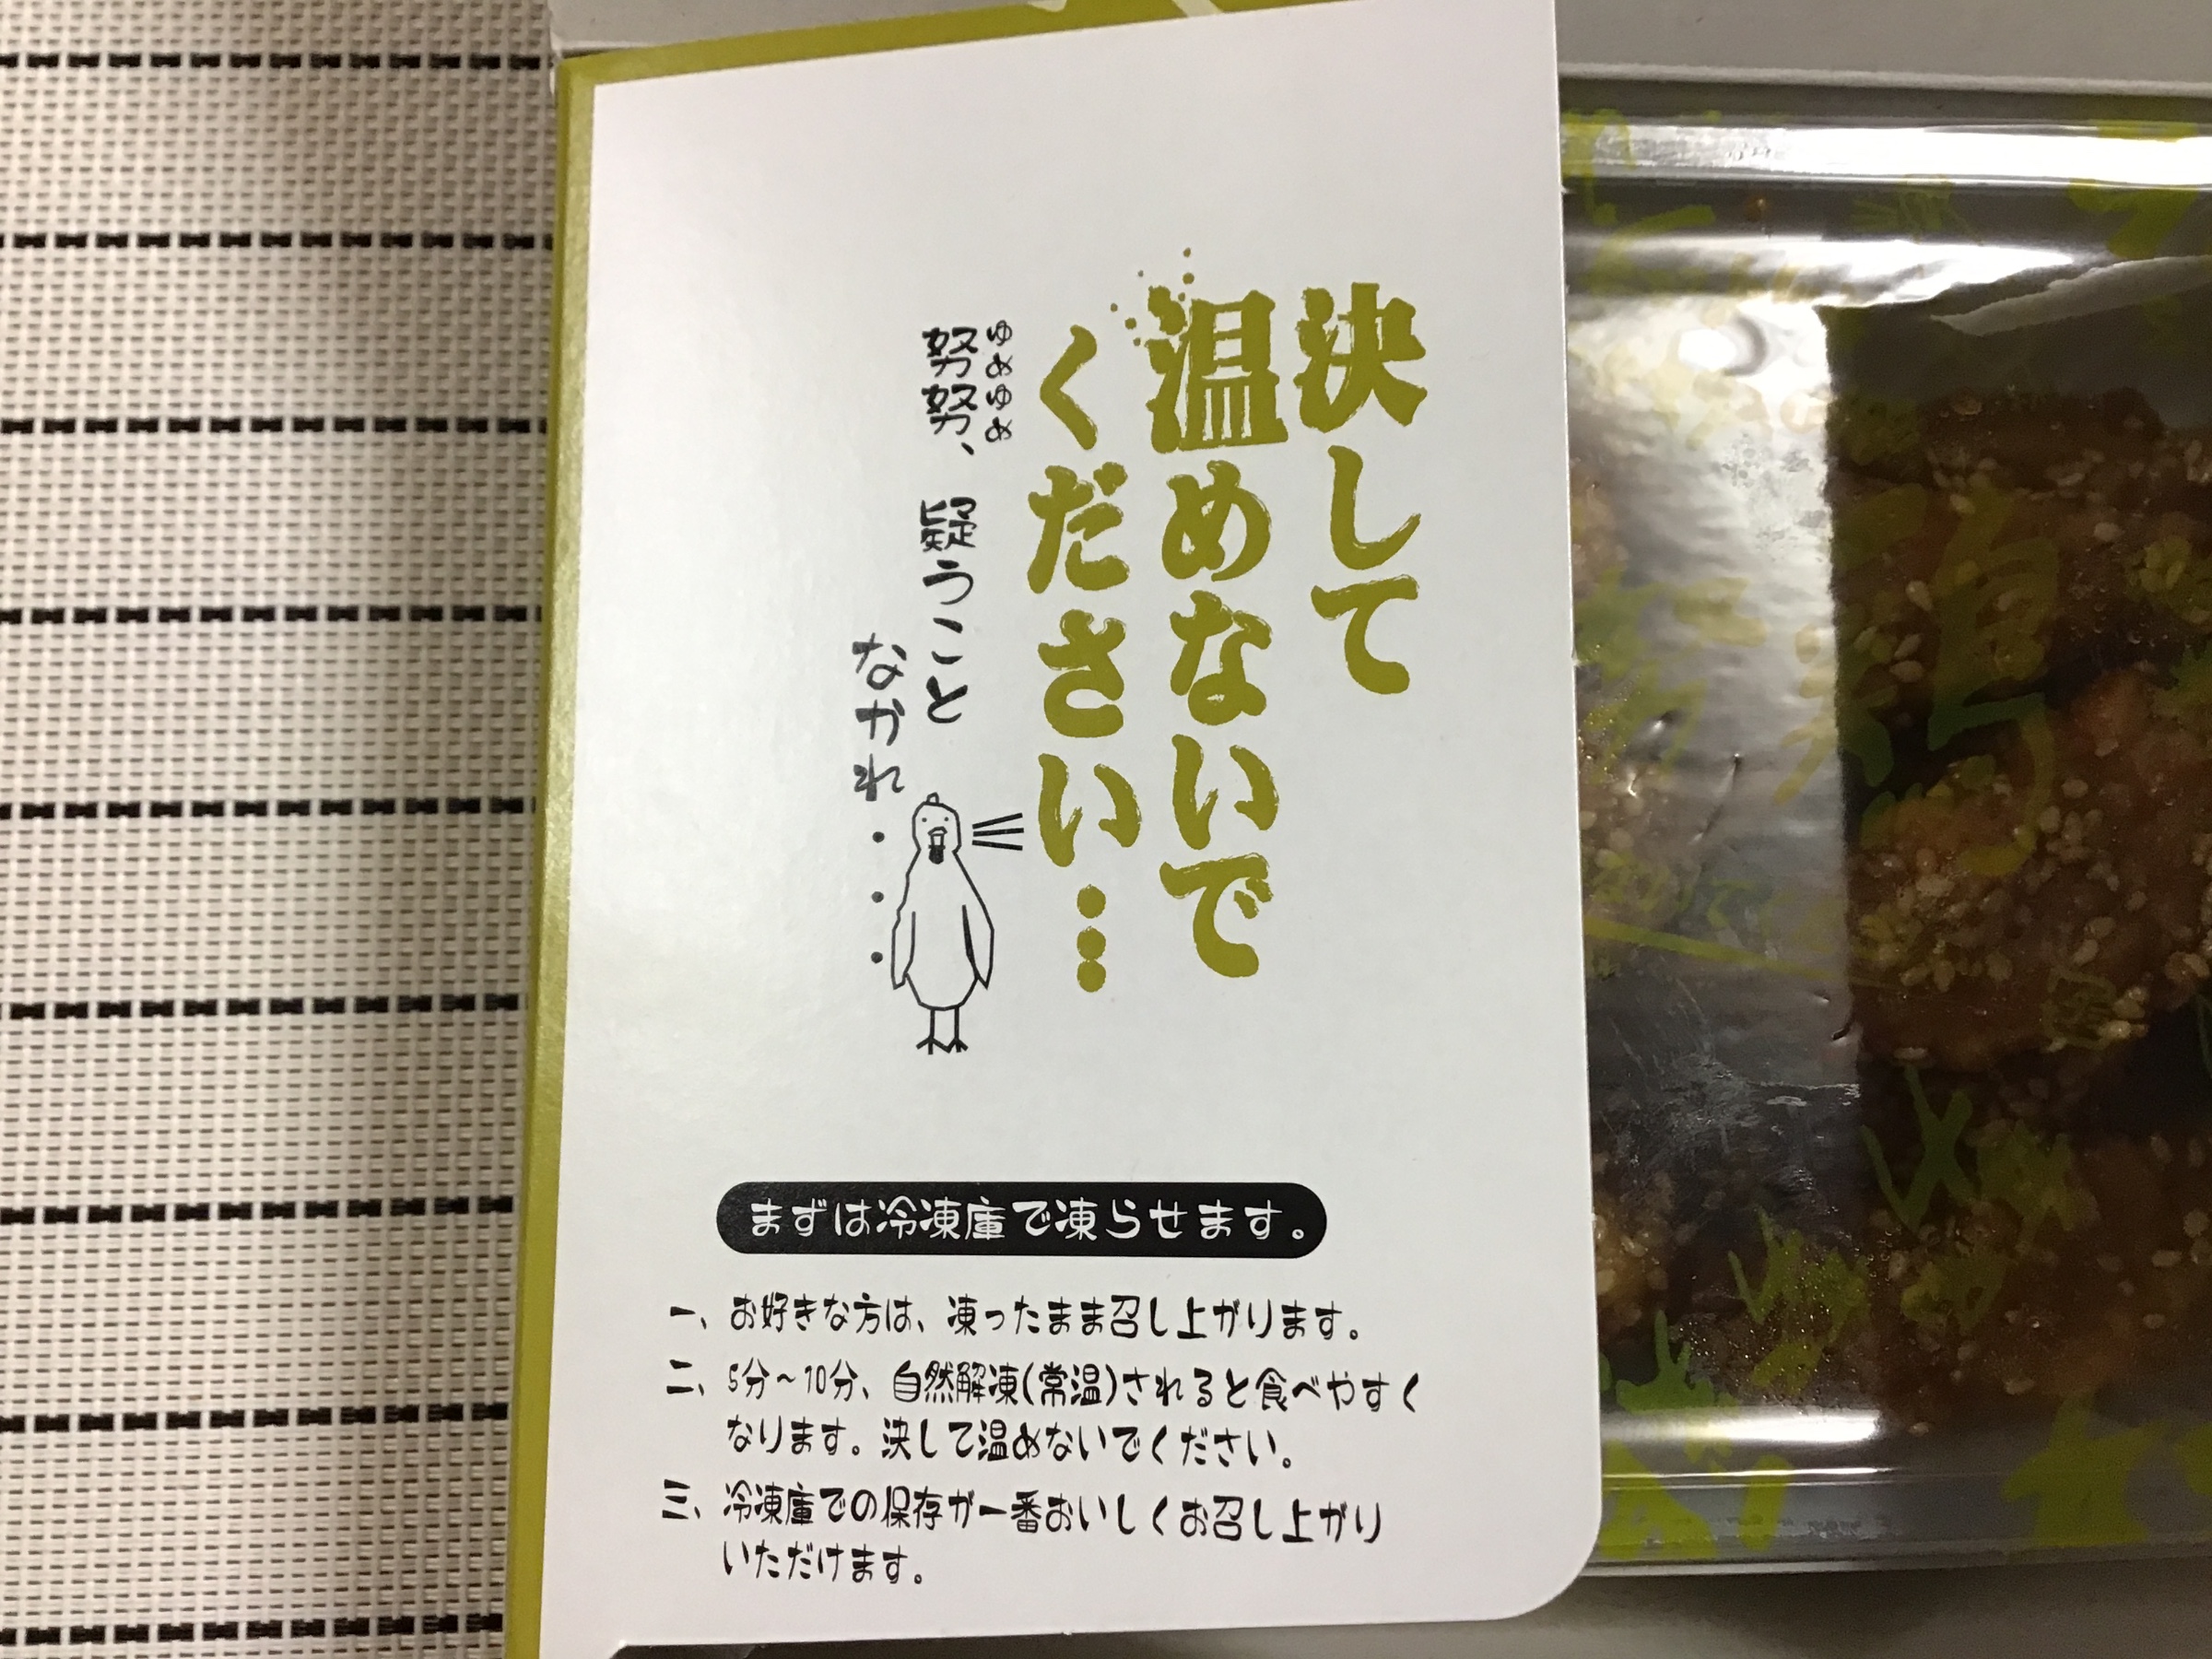 決して
温めないで
ください…
ゆめゆめ
努努、疑うこと
なかれ・・・
まずは冷凍庫で凍らせます。
一、お好きな方は、凍ったまま召し上がります。
二、5分～10分、自然解凍(常温)されると食べやすく
なります。決して温めないでください。
三、冷凍庫での保存が一番おいしくお召し上がり
いただけます。